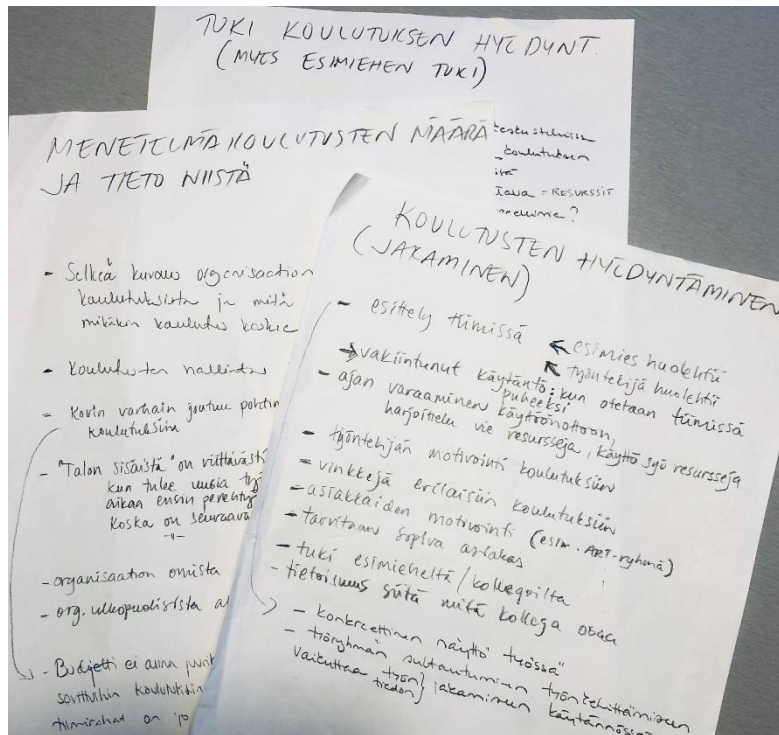 TUKI KOULUTUKSEN HYÖDYNT.
(MYÖS ESIMIEHEN TUKI)
koulutuksen
= RESURSSIT
MENETELMÄKOULUTUSTEN MÄÄRÄ
JA TIETO NIISTÄ
- Selkeä kuvaus organisaation
koulutuksista ja mitä
mikäkin koulutus koskee
- Koulutusten hallinta
- Kovin varhain joutuu
koulutuksiin
- "Talon sisäistä" on riittävästi
kun tulee uusia
aikaa ensin
koska on seuraava
-"-
- organisaation omista
- org. ulkopuolisista
- Budjetti ei anna
on jo
KOULUTUSTEN HYÖDYNTÄMINEN
(JAKAMINEN)
- esittely tiimissä ← esimies huolehtii
↖ työntekijä huolehtii
→ vakiintunut käytäntö: kun otetaan tiimissä
puheeksi
- ajan varaaminen käyttöönottoon,
harjoittelu vie resursseja, käyttö syö resursseja
- työntekijän motivointi koulutuksiin
- vinkkejä erilaisiin koulutuksiin
- asiakkaiden motivointi (esim. ART-ryhmä)
- tarvitaan sopiva asiakas
- tuki esimieheltä/kollegoilta
- tietoisuus siitä mitä kollega osaa
- konkreettinen näyttö "työssä"
- työryhmän suhtautuminen työn kehittämiseen
vaikuttaa työn} jakamiseen käytännössä
tiedon}